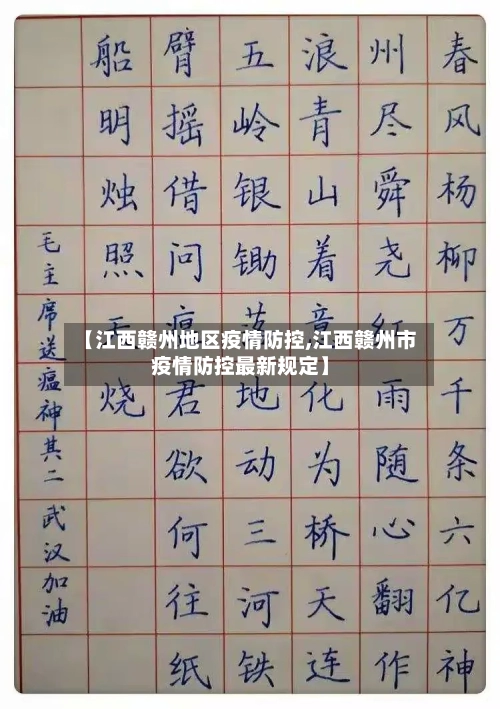 春风杨柳万千条六亿神
州尽舜尧红雨随心翻作
浪青山着意化为桥天连
五岭银锄落地动三河铁
臂摇借问瘟君欲何往纸
船明烛照天烧
毛主席送瘟神其二 武汉加油
【江西赣州地区疫情防控,江西赣州市
疫情防控最新规定】